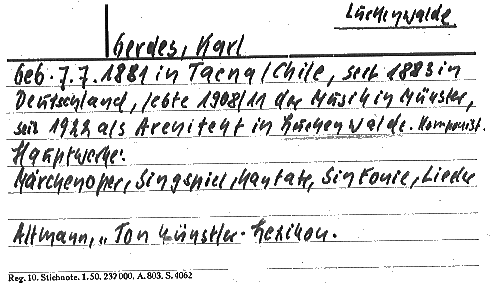 Luckenwalde
Gerdes, Karl
Geb. 7.7.1881 in Tacna/Chile, seit 1883 in
Deutschland, lebte 1908/11 der Musik in Münster,
seit 1922 als Architekt in Luckenwalde. Komponist.
Hauptwerke:
Märchenoper, Singspiel, Kantate, Sinfonie, Lieder
Altmann, „Tonkünstler-Lexikon.
Reg. 10. Stichnote. 1. 50. 232000. A. 803. S. 4062